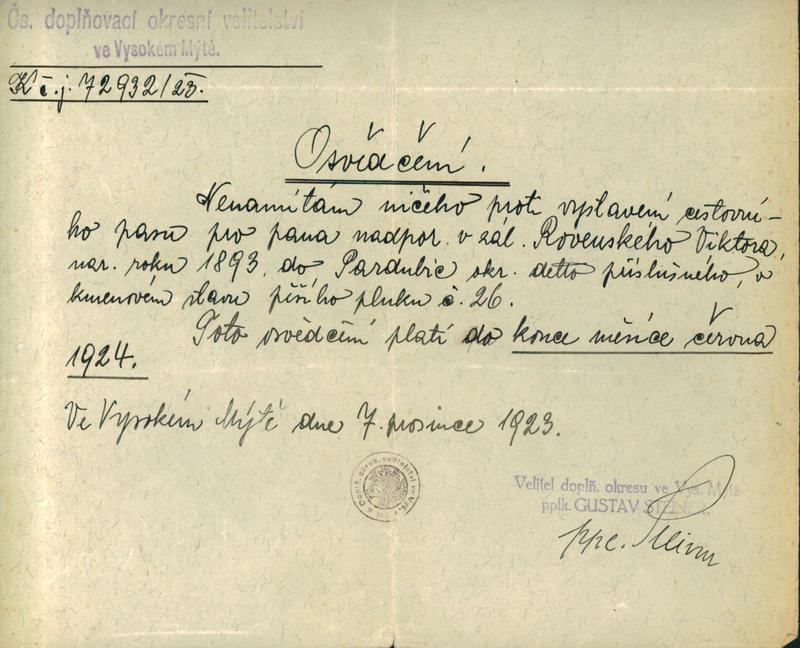 Čs. doplňovací okresní velitelství
ve Vysokém Mýtě.
K č. j. 72932/23.
Osvědčení.
Nenamítám ničeho proti vystavení cestovní-
ho pasu pro pana nadpor. v zál. Rovenského Viktora,
nar. roku 1893, do Pardubic okr. detto příslušného, v
kmenovém stavu pěšího pluku č. 26.
Toto osvědčení platí do konce měsíce června
1924.
Ve Vysokém Mýtě dne 7. prosince 1923.
Velitel doplň. okresu ve Vys. Mýtě
pplk. GUSTAV